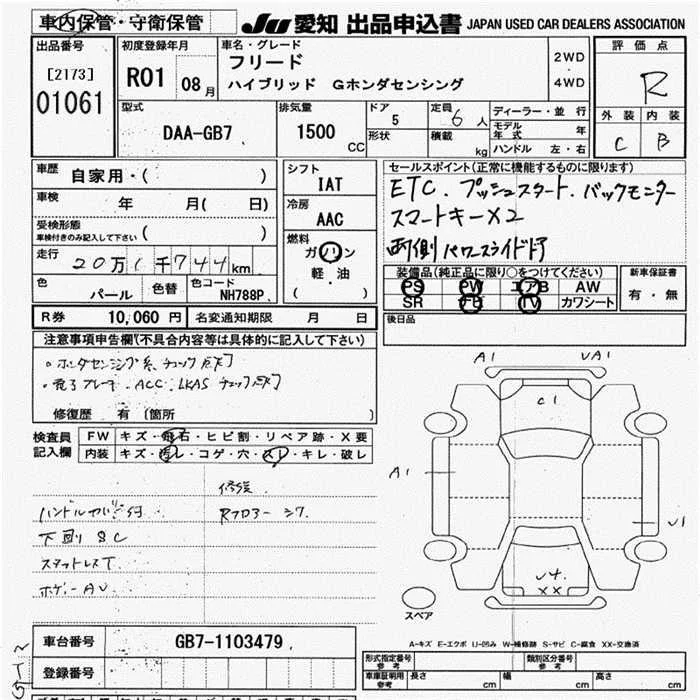 車内保管・守衛保管
JU 愛知 出品申込書 JAPAN USED CAR DEALERS ASSOCIATION
出品番号
[2173]
01061
初度登録年月
R01 08月
車名・グレード
フリード
ハイブリッド Gホンダセンシング
2WD
・
4WD
評価点
R
外装 内装
C B
型式
DAA-GB7
排気量
1500 CC
ドア
5
形状
定員
6人
積載
kg
ディーラー・並行
モデル年式 年
ハンドル 左・右
車歴
自家用・( )
車検 年 月( 日)
受検形態
車検付きのみ記入して下さい ( )
走行
20万1千744km
色
パール
色替
色コード
NH788P
シフト
IAT
冷房
AAC
燃料
ガソリン
軽・油
( )
セールスポイント(正常に機能するものに限ります)
ETC. プッシュスタート. バックモニター
スマートキー×2
両側パワースライドドア
装備品(純正品に限り○をつけてください)
PS PW エアB AW
SR FD TV カワシート
新車保証書
有・無
R券 10,060円 名変通知期限 月 日
後日品
注意事項申告欄(不具合内容等は具体的に記入して下さい)
・ホンダセンシング系、チェック点灯
ブレーキ. ACC. LKAS チェック点灯
修復歴 有 (箇所 )
検査員記入欄
FW キズ・飛石・ヒビ割・リペア跡・X要
内装 キズ・汚レ・コゲ・穴・スレ・キレ・破レ
修復
ハンドルカバー付
下廻 SC
スタットレスT
ボデーAU
A1 UA1
C1
A1
U1
U4.
XX
スペア
A-キズ E-エクボ U-凹み W-補修跡 S-サビ C-腐食 XX-交換済
車台番号 GB7-1103479
登録番号
形式指定番号 参考
類別区分番号 参考
車庫証明用 参考 長さ cm 幅 cm 高さ cm